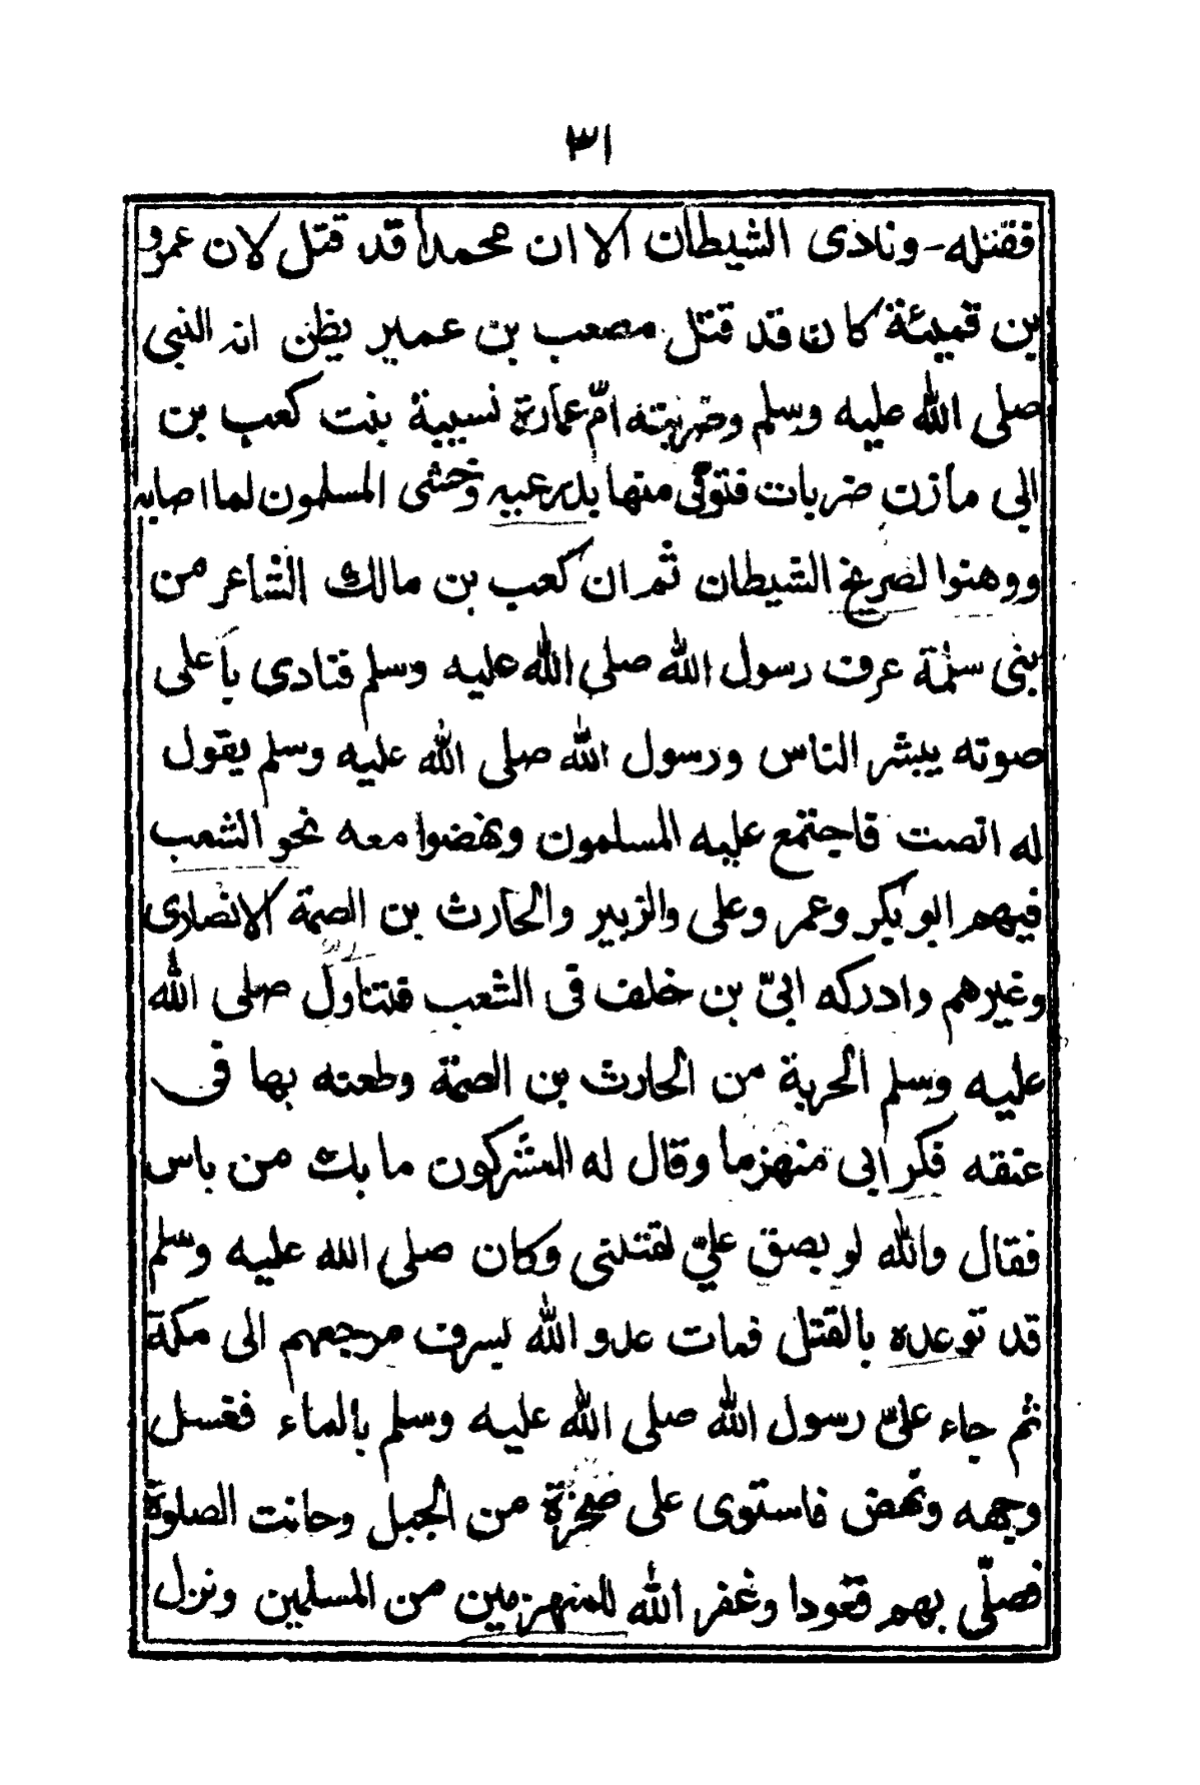 ٣١
فقتله - ونادى الشيطان الا ان محمدا قد قتل لان عمرو
بن قميئة كان قد قتل مصعب بن عمير يظن انه النبى
صلى الله عليه وسلم وضربته امّ عمارة نسيبة بنت كعب بن
ابى مازن ضربات فتوقّى منها بدرعيه وخشى المسلمون لما اصابه
ووهنوا لصريخ الشيطان ثم ان كعب بن مالك الشاعر من
بنى سلمة عرف رسول الله صلى الله عليه وسلم فنادى بأعلى
صوته يبشر الناس ورسول الله صلى الله عليه وسلم يقول
له انصت فاجتمع عليه المسلمون ونهضوا معه نحو الشعب
فيهم ابو بكر وعمر وعلى والزبير والحارث بن الصمة الانصارى
وغيرهم وادركه ابىّ بن خلف فى الشعب فتناول صلى الله
عليه وسلم الحربة من الحارث بن الصمة وطعنه بها فى
عنقه فكر ابى منهزما وقال له المشركون ما بك من باس
فقال والله لو بصق علىّ لقتلنى وكان صلى الله عليه وسلم
قد توعده بالقتل فمات عدو الله بسرف مرجعهم الى مكة
ثم جاء علىّ رسول الله صلى الله عليه وسلم بالماء فغسل
وجهه ونهض فاستوى على صخرة من الجبل وحانت الصلوة
فصلّى بهم قعودا وغفر الله للمنهزمين من المسلمين ونزل